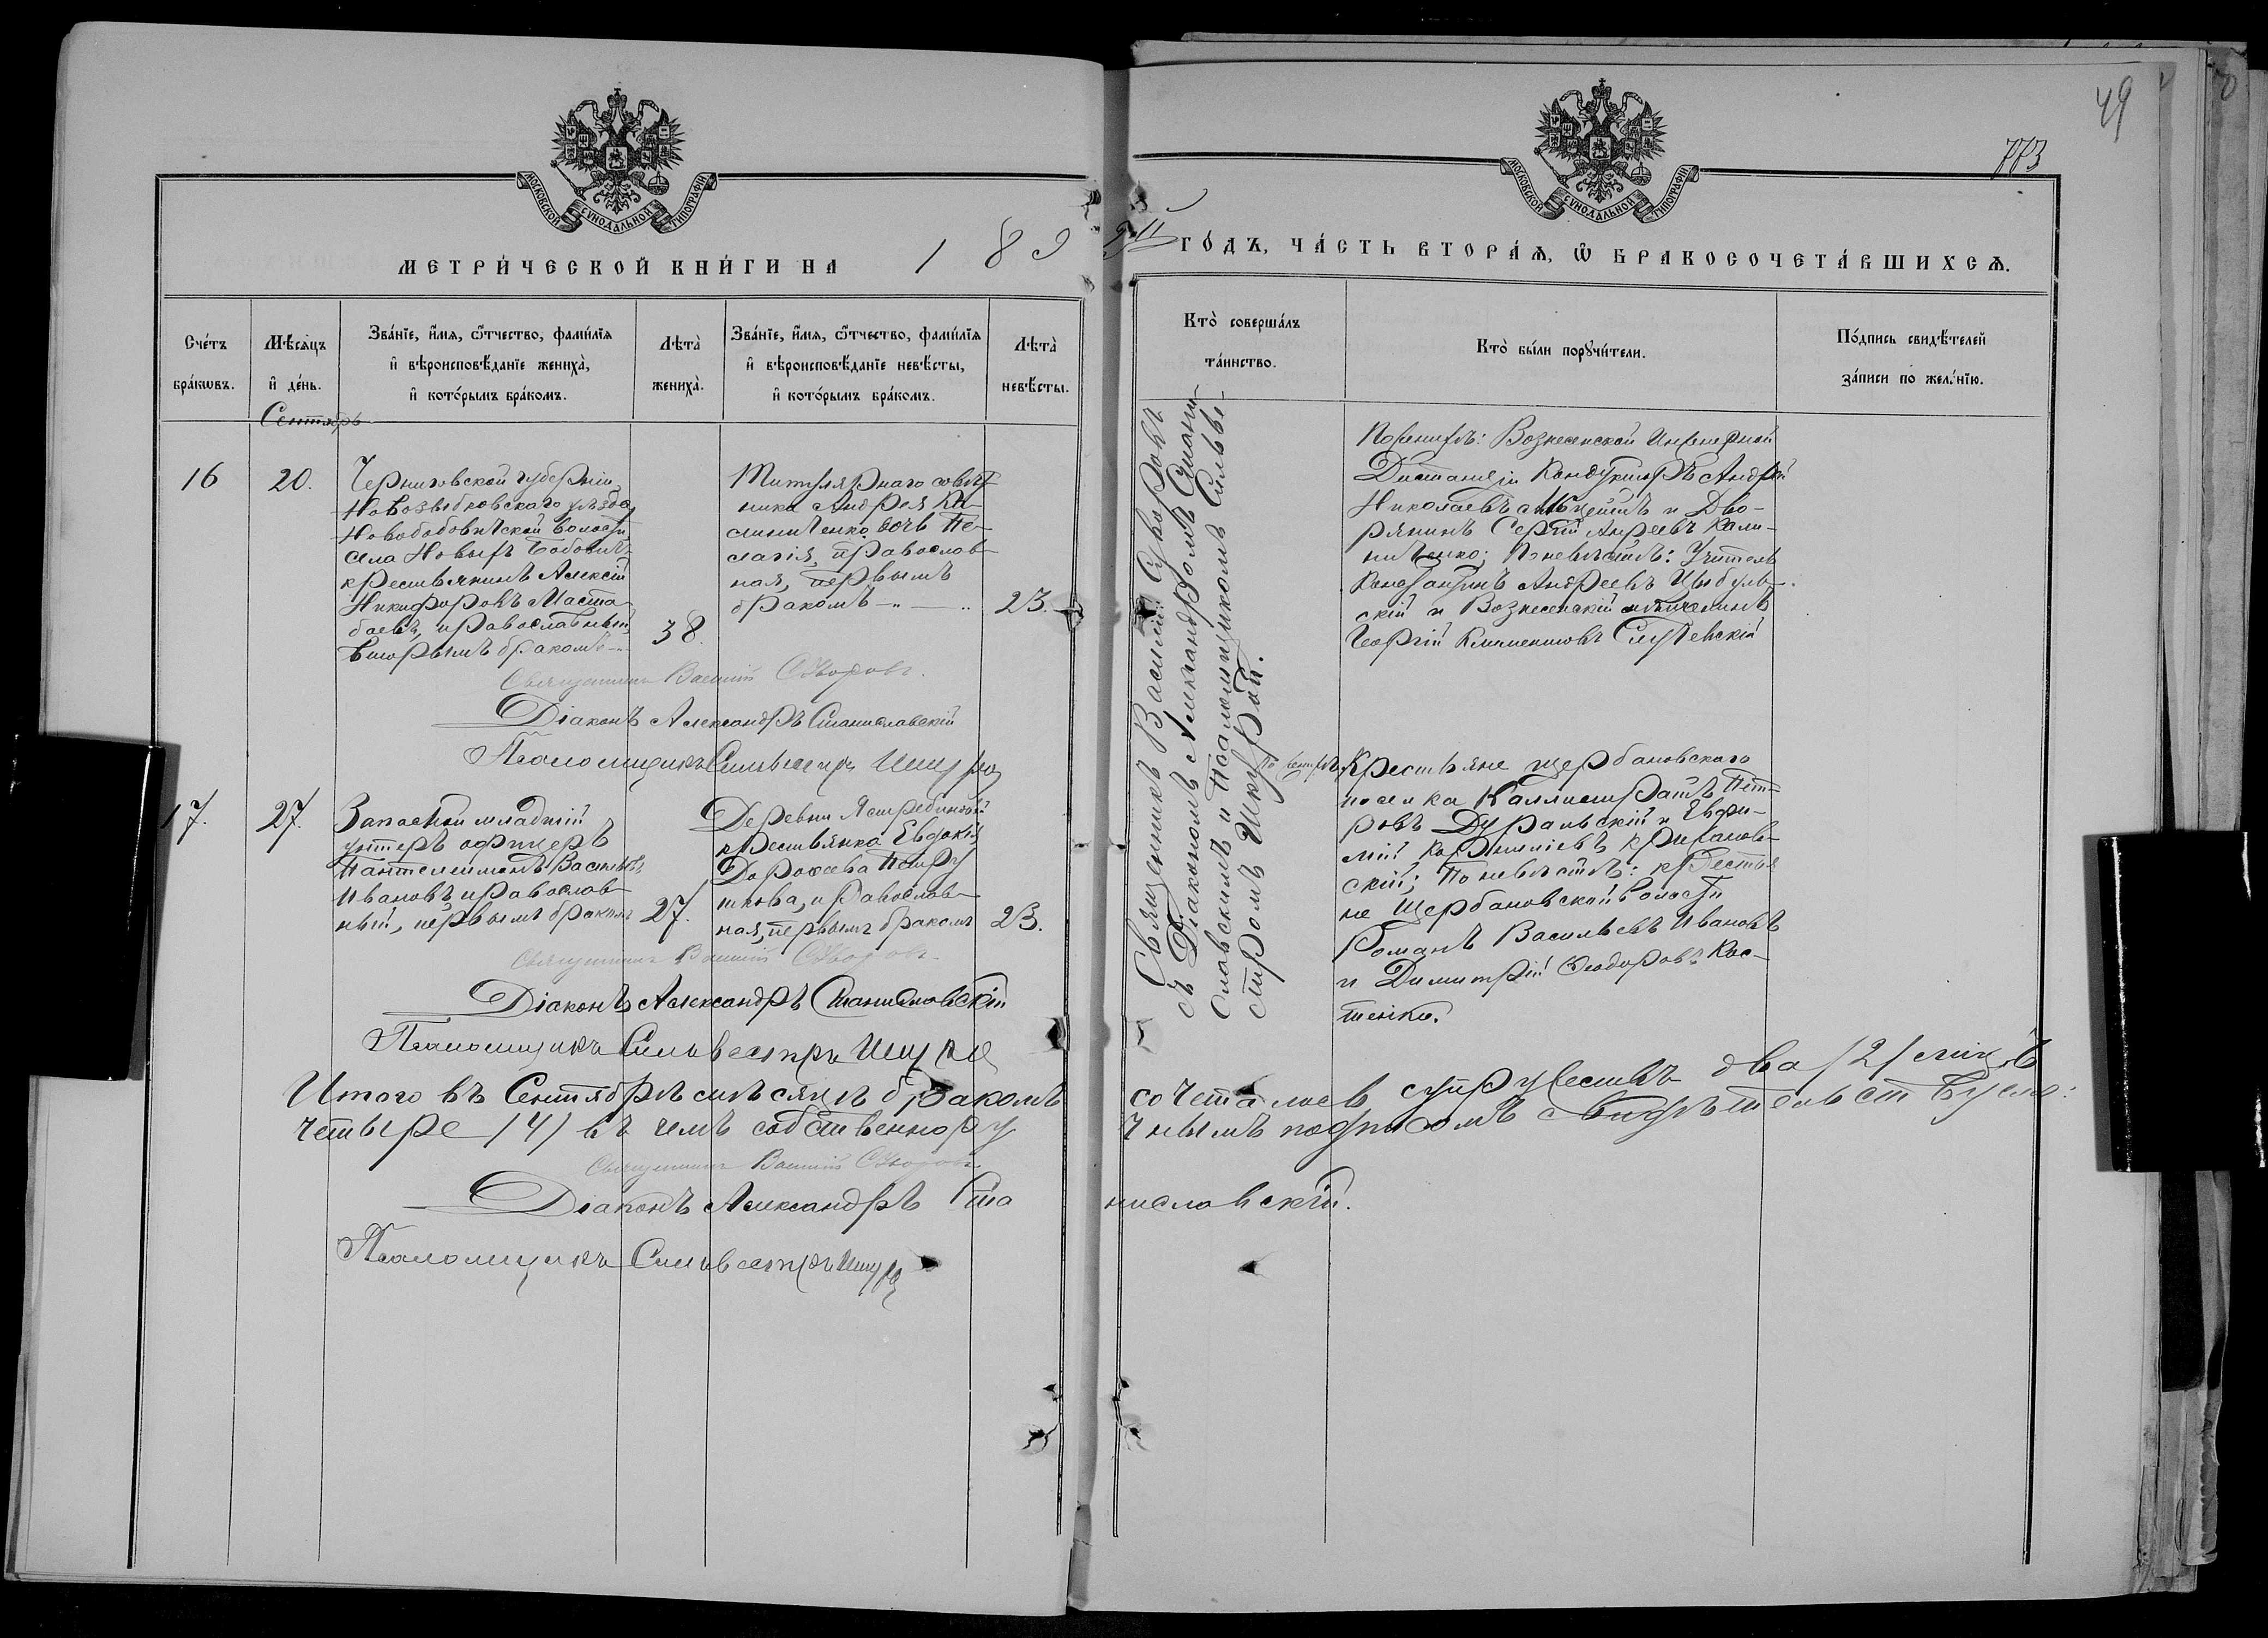 49
773
МОСКОВСКОЙ СѴНОДАЛЬНОЙ ТИПОГРАФІИ
МОСКОВСКОЙ СѴНОДАЛЬНОЙ ТИПОГРАФІИ
МЕТРИ́ЧЕСКОЙ КНИ́ГИ НА 189
ГО́ДЪ, ЧА́СТЬ ВТОРА́Ѧ, Ѽ БРАКОСОЧЕТА́ВШИХСѦ.
Сче́тъ
бра́кѡвъ.
Мѣ́сѧцъ
и҆ де́нь.
Зва́нїе, и҆́мѧ, ѻ҆́тчество, фами́лїѧ
и҆ вѣроисповѣ́данїе жениха̀,
и҆ кото́рымъ бра́комъ.
Лѣта̀
жениха̀.
Зва́нїе, и҆́мѧ, ѻ҆́тчество, фами́лїѧ
и҆ вѣроисповѣ́данїе невѣ́сты,
и҆ кото́рымъ бра́комъ.
Лѣта̀
невѣ́сты.
Кто̀ соверша́лъ
та́инство.
Кто̀ бы́ли порꙋчи́тели.
По́дпись свидѣ́телей
за́писи по жела́нїю.
Сентябрь
16
20.
Черниговской губерніи
Новозыбковскаго уѣзда,
Новобобовичской волости
села Новыхъ Бобовичъ
крестьянинъ Алексій
Никифоровъ Маста-
баевъ, православный,
вторымъ бракомъ
38.
Титулярнаго совѣт-
ника Андрея Ка-
линиченко дочь Пе-
лагія, православ-
ная, первымъ
бракомъ
23.
Священникъ Василій Суворовъ
съ Діакономъ Александромъ Стани-
славскимъ и Псаломщикомъ Сильве-
стромъ Шкурой.
По женихѣ: Вознесенской Инженерной
Дистанціи Кондукторъ Андрей
Николаевъ и Дво-
рянинъ Сергій Андреевъ Кали-
ниченко; По невѣстѣ: Учитель
Константинъ Андреевъ Цыбуль-
скій и Вознесенскій мѣщанинъ
Георгій Климентовъ
Священникъ Василій Суворовъ.
Діаконъ Александръ Станиславскій
Псаломщикъ Сильвестръ Шкура
17.
27.
Запасной младшій
унтеръ офицеръ
Пантелеймонъ Васильевъ
Ивановъ, православ-
ный, первымъ бракомъ
27.
Деревни Ястребиновой
крестьянка Евдокія
Дорофеева Петру-
шкова, православ-
ная, первымъ бракомъ
23.
По женихѣ: Крестьяне щербановскаго
поселка Каллистратъ Пет-
ровъ Дуральскій и Евфи-
мій Корниліевъ
скій; По невѣстѣ: крестья-
не Щербановской волости
Романъ Васильевъ Ивановъ
и Димитрій Ѳеодоровъ Кос-
тенко.
Священникъ Василій Суворовъ
Діаконъ Александръ Станиславскій
Псаломщикъ Сильвестръ Шкура
Итого въ Сентябрѣ мѣсяцѣ бракомъ сочеталось супружествъ два /2/ лицъ
четыре /4/ въ чемъ собственноручнымъ подписомъ свидѣтельствуемъ:
Священникъ Василій Суворовъ
Діаконъ Александръ Станиславскій.
Псаломщикъ Сильвестръ Шкура